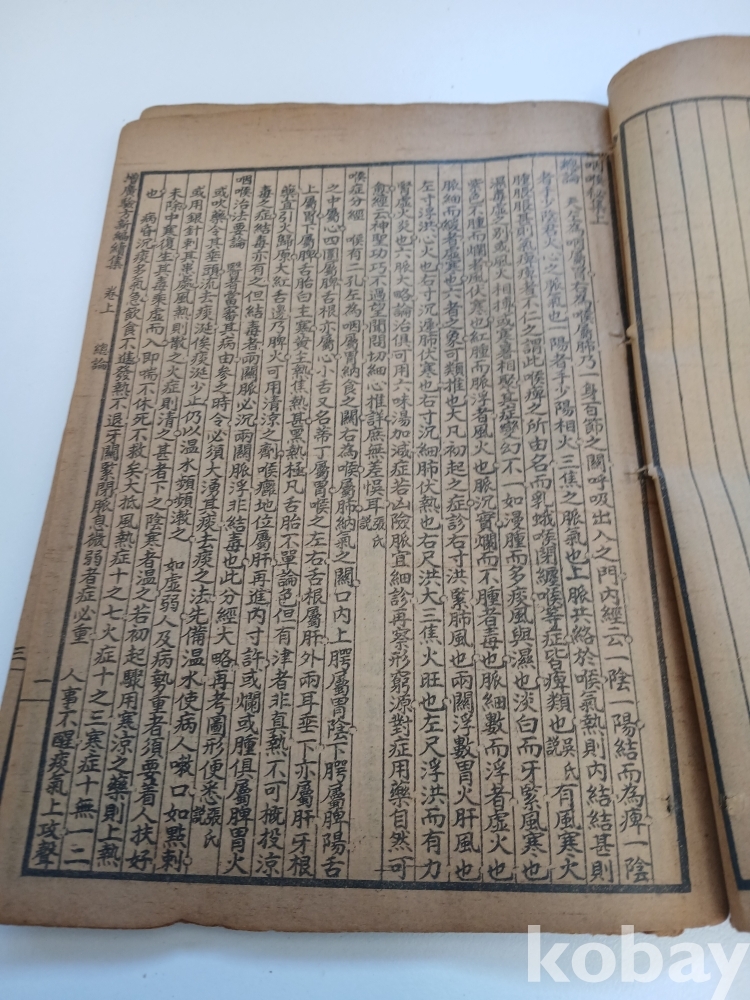 咽喉秘集上
總論 左爲咽屬胃右為喉屬肺乃一身百節之關呼吸出入之門內經云一陰一陽結而為痺一陰
者手少陰君火心之脈氣也一陽者手少陽相火三焦之脈氣也上脈共絡於喉氣熱則內結結甚則
腫脹脹甚則氣痺痺者不仁之謂此喉痺之所由名而乳蛾喉閉纏喉等症皆痺類也吳氏說 有風寒火
濕毒虛之別或風火相搏或寒暑相聚其症變幻不一如漫腫而多痰風與濕也淡白而牙緊風寒也
紫色不腫而爛者伏寒也紅腫而脈浮者風火也脈沉實爛而不腫者毒也脈細數而浮者虛火也
脈細而緩者虛寒也六者之象可類推也大凡初起之症診右寸洪緊肺風也兩關浮數胃火肝風也
左寸浮洪心火也右寸沉遲肺伏寒也右寸沉細肺伏熱也右尺洪大三焦火旺也左尺浮洪而有力
腎虛火炎也六脈大略論治俱可用六味湯加減症若凶險脈宜細診再察形窮源對症用藥自然可
愈經云神聖功巧不過望聞問切細心推詳庶無差悞耳張氏說
喉症分經 喉有二孔左為咽屬胃納食之關右為喉屬肺納氣之關口內上腭屬胃陰下腭屬脾陽舌
之中屬心四圍屬脾舌根亦屬心小舌又名蒂丁屬胃喉之左右舌根屬肝外兩耳垂下亦屬肝牙根
上屬胃下屬脾舌胎白主寒黃主熱焦熱甚黑熱極凡舌胎不單論色但有津者非直熱不可概投涼
藥宜引火歸原大紅舌邊乃脾火可用清涼之劑喉癰地位屬肝再進內寸許或爛或腫俱屬脾胃火
毒之症結毒亦有之但結毒者兩關脈必沉兩關脈浮非結毒也此分經大略再考圖形便悉張氏說
咽喉治法要論 賢者當審其病由參之時令必須大湧其痰去痰之法先備溫水使病人噉口如點刺
或吹藥令其垂頭流去痰涎俟痰涎少止仍以溫水頻頻漱之 如虛弱人及病勢重者須要着人扶好
或用銀針刺其患處風熱則散之火症則清之甚者下之陰寒者溫之若初起驟用寒涼之藥則上熱
未除中寒復生其毒乘虛而入即喘不休死不救矣大抵風熱症十之七火症十之三寒症十無一二
也 病昏沉痰多氣急飲食不進發熱不退牙關緊閉脈息微弱者症必重 人事不醒痰氣上攻聲
增廣驗方新編續集 卷上 總論 三 一
kobay